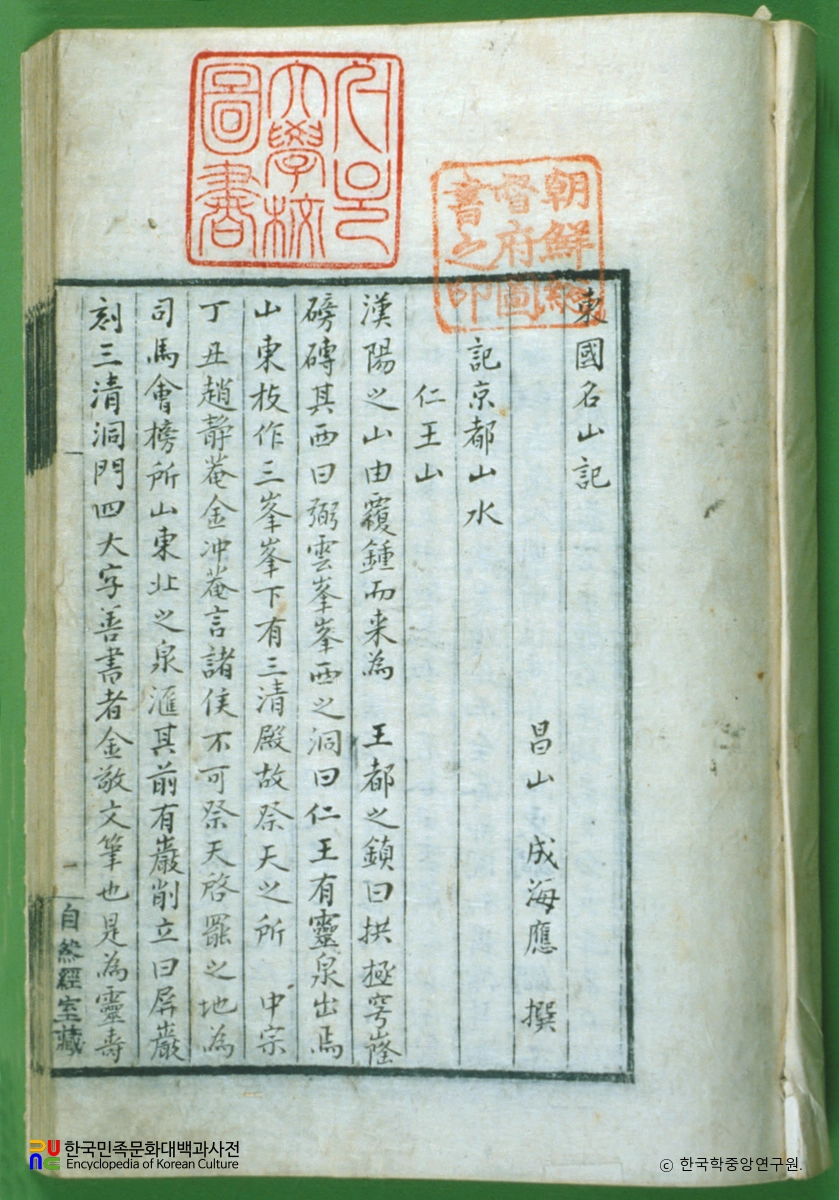 東國名山記
昌山 成海應 撰
記京都山水
仁王山
漢陽之山由覆鍾而来為 王都之鎮曰拱極穹窿
磅礡其西曰弼雲峯峯西之洞曰仁王有靈泉出焉
山東枝作三峯峯下有三清殿故祭天之所 中宗
丁丑趙静菴金冲菴言諸侯不可祭天啓罷之地為
司馬會榜所山東北之泉滙其前有巖削立曰屛巖
刻三清洞門四大字善書者金敬文筆也是為靈壽
一
自然經室藏
文學校
圖書
朝鮮總
督府圖
書之印
한국민족문화대백과사전
Encyclopedia of Korean Culture
© 한국학중앙연구원.